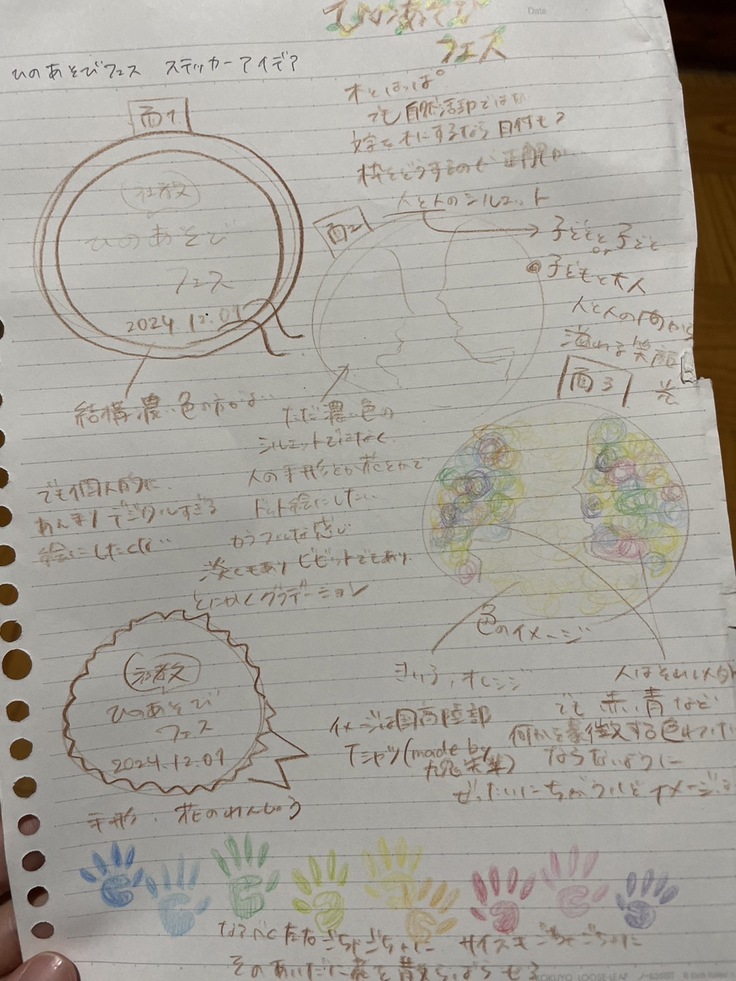 ひのあそび
フェス
Date
ひのあそびフェス ステッカーアイデア
木とはっぱ。
でも自然活部ではない
文字を木にするなら日付も?
枠をどうするのが正解か
面1
祝教
ひのあそび
フェス
2024.12.07
面2
人と人のシルエット
子どもと子ども
or
子どもと大人
人と人の間から
溢れる笑顔
光
面3
結構濃い色の方がよい
ただ濃い色の
シルエットではなく
人の手形とか花とかで
ドット絵にしたい
カラフルな感じ
淡くもあり ビビットでもあり
とにかくグラデーション
でも個人的に
あんまりデジタルすぎる
絵にしたくない
色のイメージ
きいろ,オレンジ
人はそれ以外
でも赤,青など
何かを象徴する色の
ならないように
ぜったいにちがうけどイメージ
イメージは国高陸部
Tシャツ(made by
先生)
ひのあそび
フェス
2024.12.07
手形、花のれんしゅう
なるべく ごちゃごちゃに サイズもごちゃごちゃに
そのあいだに花を散らばらせる
KOKUYO LOOSE-LEAF